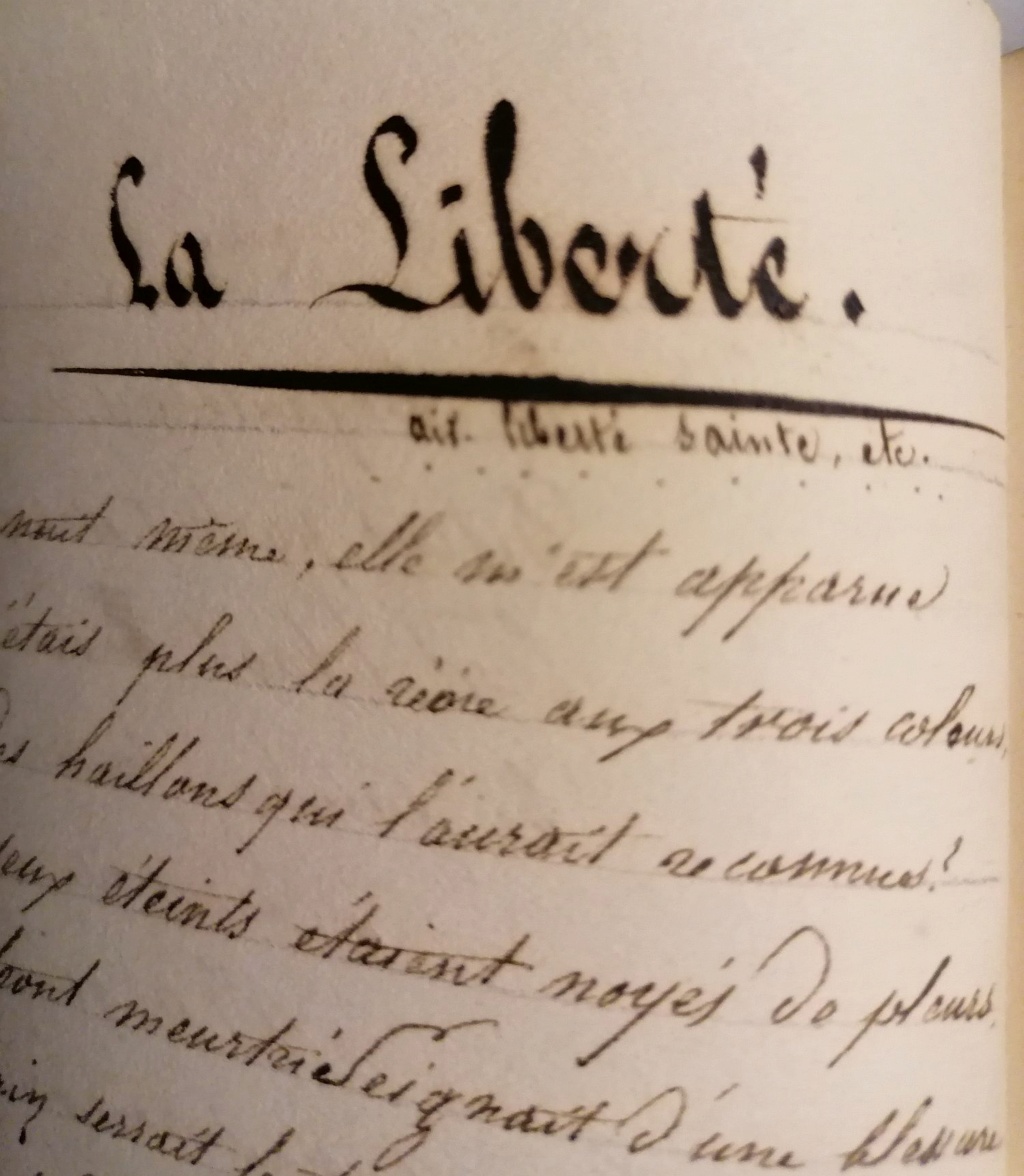 La Liberté.
air. liberté sainte, etc.
nuit même, elle m'est apparue
étais plus la reine aux trois couleurs,
haillons qui l'aurait reconnue?
éteints étaient noyés de pleurs.
meurtrie saignait d'une blessure
serrait